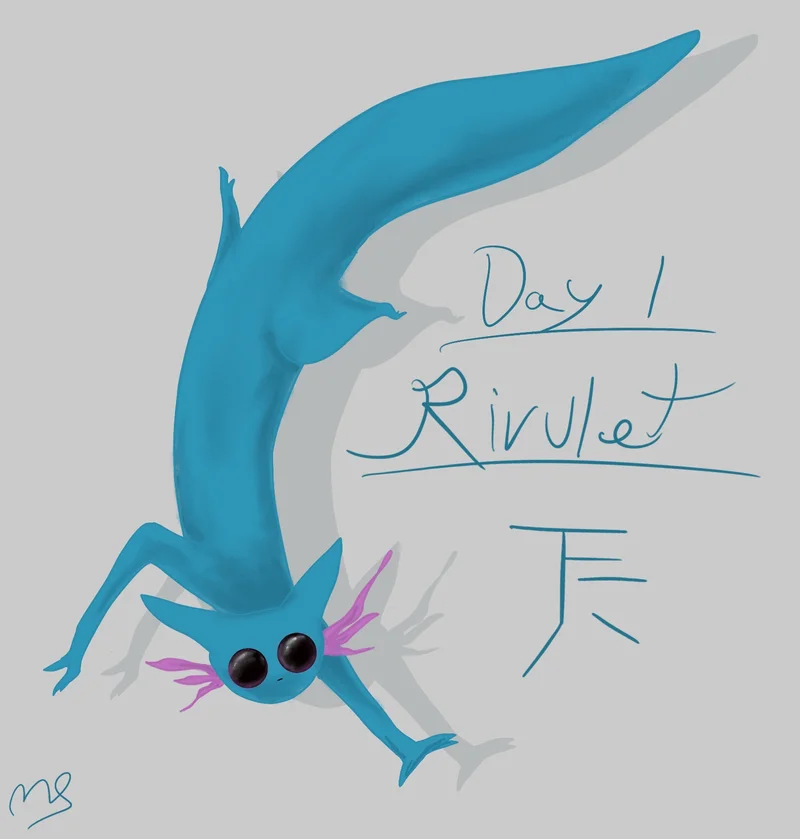 Day 1
Rivulet